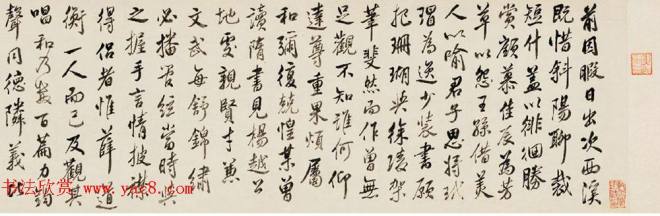 前因暇日出次西溪
既惜斜陽聊裁
短什蓋以徘徊勝
賞顧慕佳辰為芳
草以怨王孫借美
人以喻君子思將玳
瑁為逸少裝書願
把珊瑚與徐陵架
筆斐然而作曾無
足觀不知誰何仰
達尊重果煩屬
和彌復兢惶某曾
讀隋書見楊越公
地處親賢才兼
文武每舒錦繡
必播管絃當時與
之握手言情披襟
得侶者惟薛道
衡一人而已及觀其
唱和乃數百篇力鈞
聲同德隣義比
书法欣赏 www.yac8.com